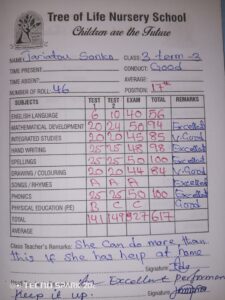 Tree of Life Nursery School
Children are the Future
Name: Jariatou Sanko CLASS: 3 term-3
TIME PRESENT: CONDUCT: Good
TIME ABSENT: AVERAGE:
NUMBER OF ROLL: 46 POSITION: 17th
SUBJECTS TEST 1 TEST 2 EXAM TOTAL REMARKS
ENGLISH LANGUAGE 6 10 40 56
MATHEMATICAL DEVELOPMENT 20 24 50 94 Excellent
INTEGRATED STUDIES 20 20 45 85 V-Good
HAND WRITING 25 25 48 98 Excellent
SPELLINGS 25 25 50 100 Excellent
DRAWING / COLOURING 20 20 44 84 V-Good
SONGS / RHYMES A A A Excellent
PHONICS 25 25 50 100 Excellent
PHYSICAL EDUCATION (PE) C C Good
TOTAL 141 149 327 617
AVERAGE
Class Teacher's Remarks: She can do more than
this if she has help at home
Signature
An Excellent performan
keep it up. Signature
TECNO SPARK 20